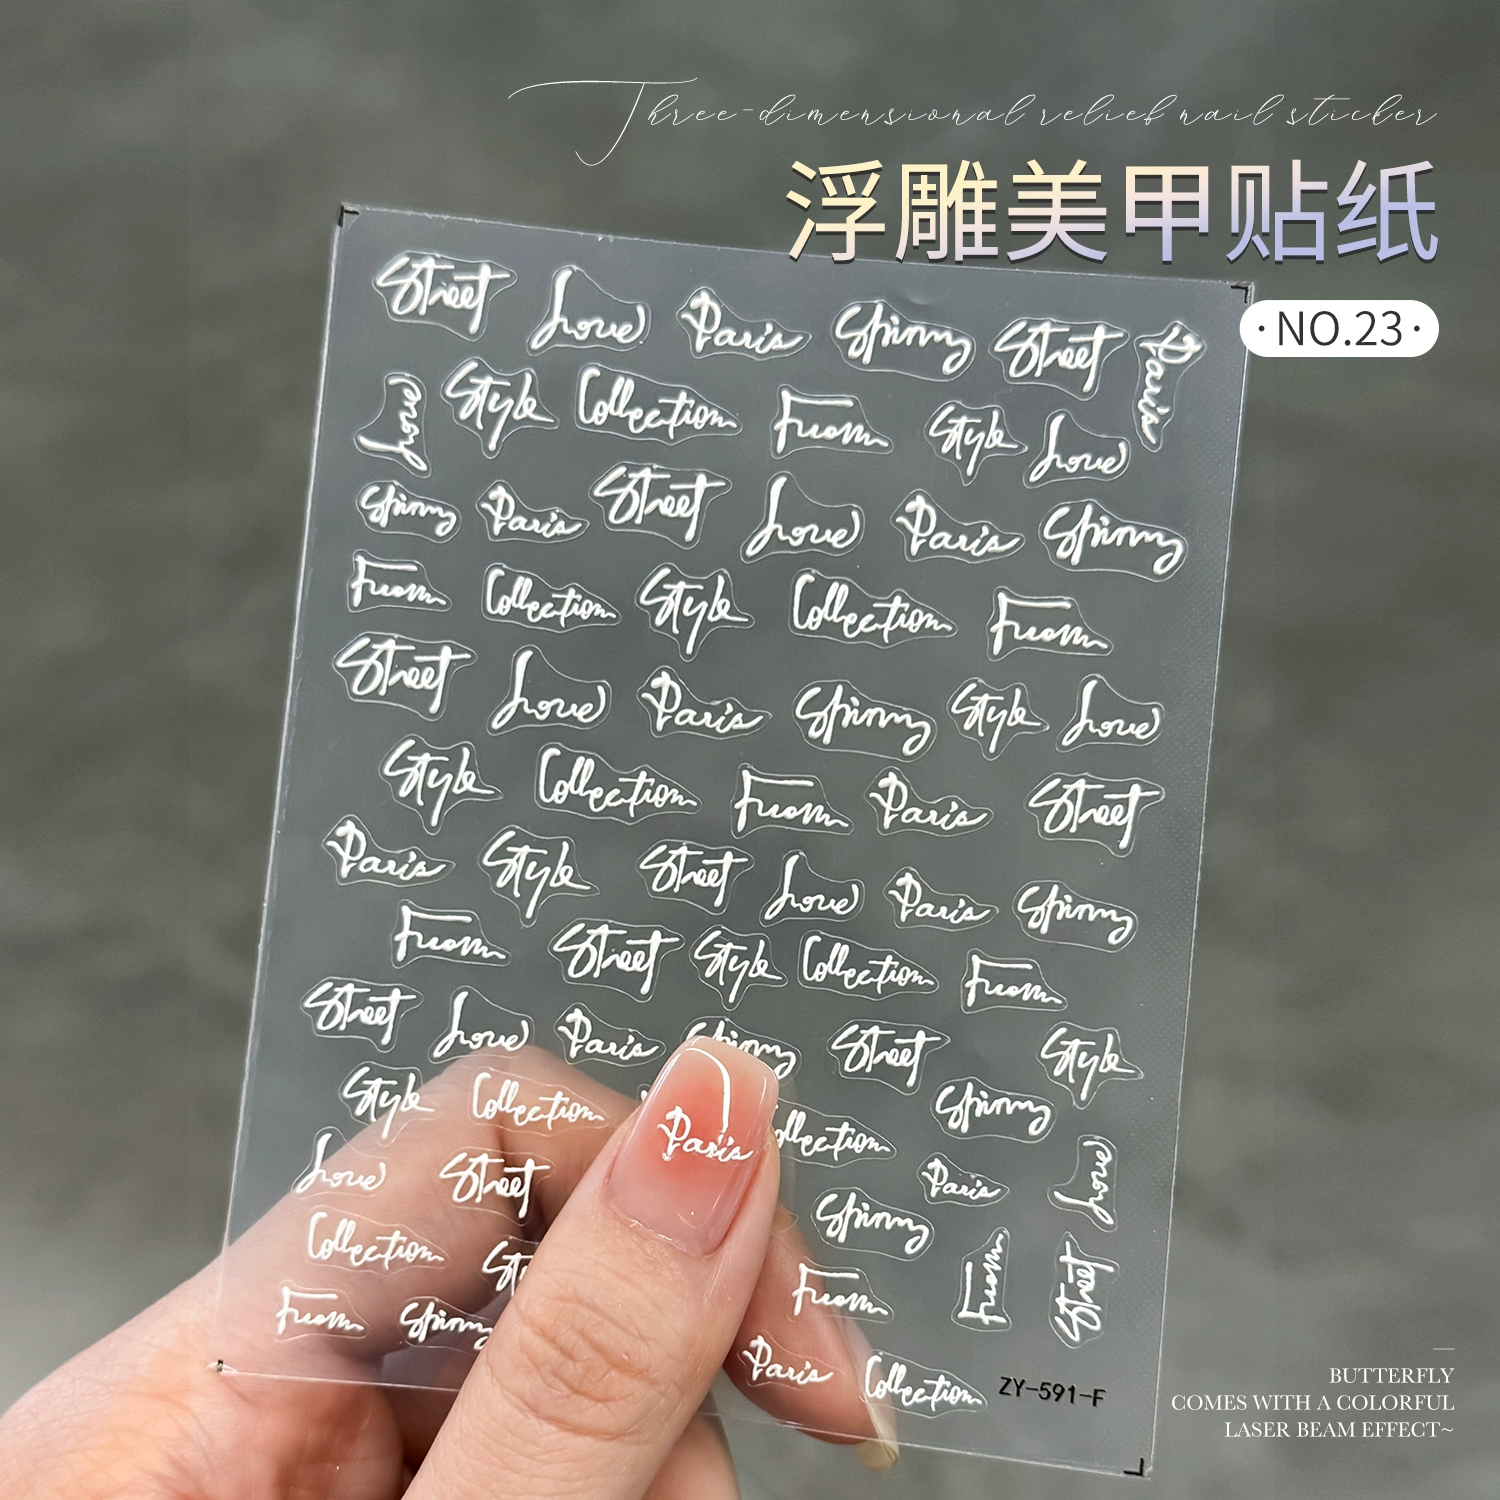 Three-dimensional relief nail sticker
浮雕美甲贴纸
·NO.23·
Street Love Paris Spinny Street Paris
Love Style Collection From Style Love
Spinny Paris Street Love Paris Spinny
From Collection Style Collection From
Street Love Paris Spinny Style Love
Style Collection From Paris Street
Paris Style Street Love Paris Spinny
From Street Style Collection From
Street Love Paris Spinny Street Style
Style Collection Paris Collection Spinny
Love Street Paris Love
Collection Spinny From Street
From Spinny From
Paris Collection ZY-591-F
BUTTERFLY
COMES WITH A COLORFUL
LASER BEAM EFFECT~